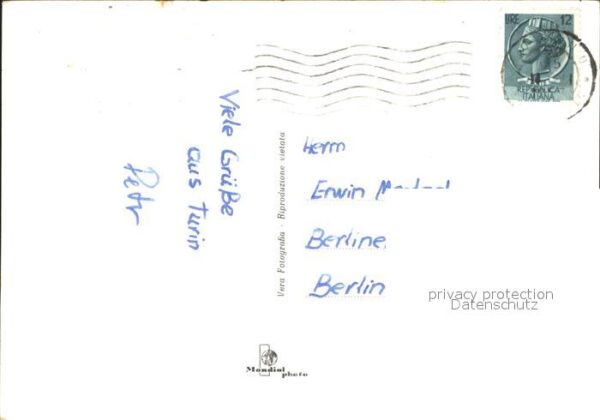 Viele Grüße
aus Turin
Petr
Vera Fotografia - Riproduzione vietata
Herrn
Erwin
Berline
Berlin
LIRE 12
REPUBBLICA
ITALIANA
privacy protection
Datenschutz
Mondial
photo